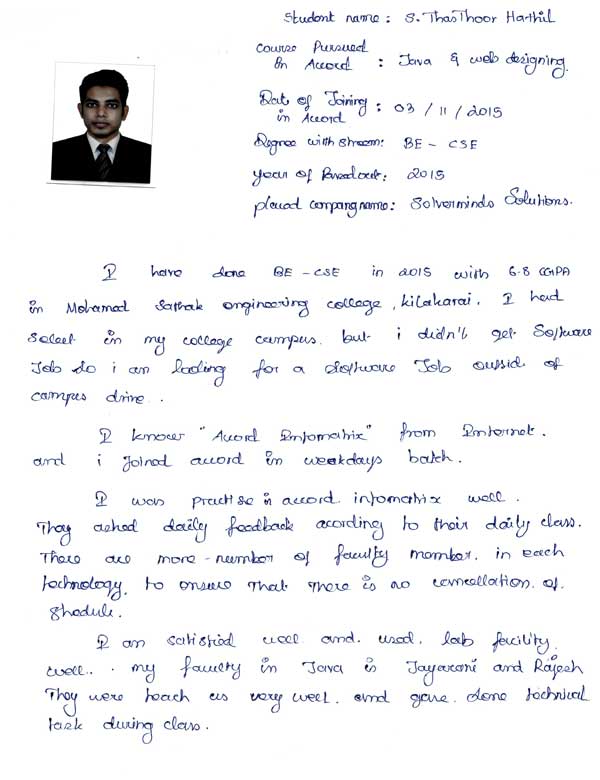 Student name : S. ThasThoor Hathil
Course Pursued
In Accord : Java & web designing.
Dat of Joining
in Accord : 03 / 11 / 2015
Degree with stream: BE - CSE
year of Passedout: 2015
placed company name: Solverminds Solutions.
I have done BE - CSE in 2015 with 6.8 CGPA
in Mohamed Sathak engineering college, kilakarai. I had
Select in my college campus. but i didn't get Software
Job So i am looking for a Software Job outside of
campus drive.
I know "Accord Infomatrix" from Internet.
and i Joined accord in weekdays batch.
I was practise in accord infomatrix well.
They asked daily feedback acording to their daily class.
There are more - number of faculty member. in each
technology, to ensure That There is no cancellation of
Shedule.
I am satisfied well and used. lab facility
well.. . my faculty in Java is Jayarani and Rajesh
They were teach us very well. and gave. done technical
task during class.